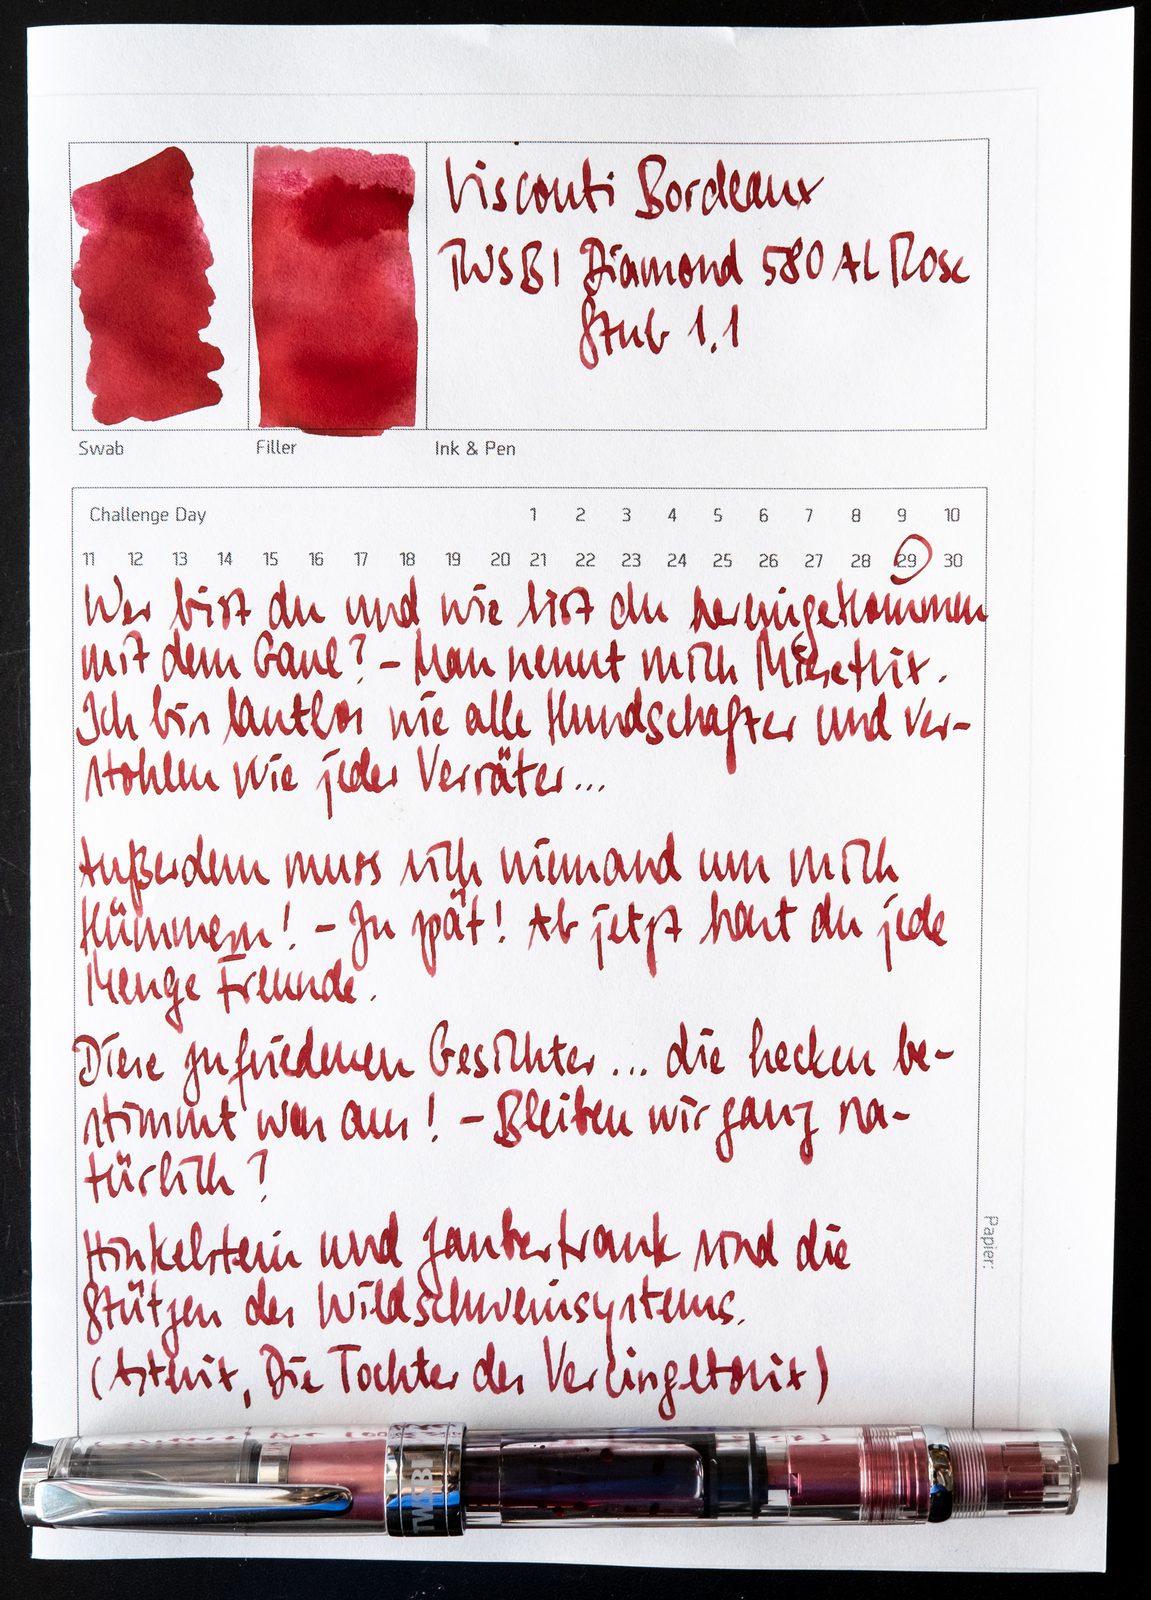 Visconti Bordeaux
TWSBI Diamond 580 AL Rose
Stub 1.1
Swab
Filler
Ink & Pen
Challenge Day 1 2 3 4 5 6 7 8 9 10
11 12 13 14 15 16 17 18 19 20 21 22 23 24 25 26 27 28 29 30
Wer bist du und wie bist du hereingekommen
mit dem Gaul? – Man nennt mich Miesetrix.
Ich bin lautlos wie alle Kundschafter und ver-
stohlen wie jeder Verräter...
Außerdem muss sich niemand um mich
kümmern! – Zu spät! Ab jetzt hast du jede
Menge Freunde.
Diese zufriedenen Gesichter... die hecken be-
stimmt was aus! – Bleiben wir ganz na-
türlich?
Hinkelstein und Zaubertrank sind die
Stützen des Wildschweinsystems.
(Asterix, Die Tochter des Vercingetorix)
Papier:
TWSBI